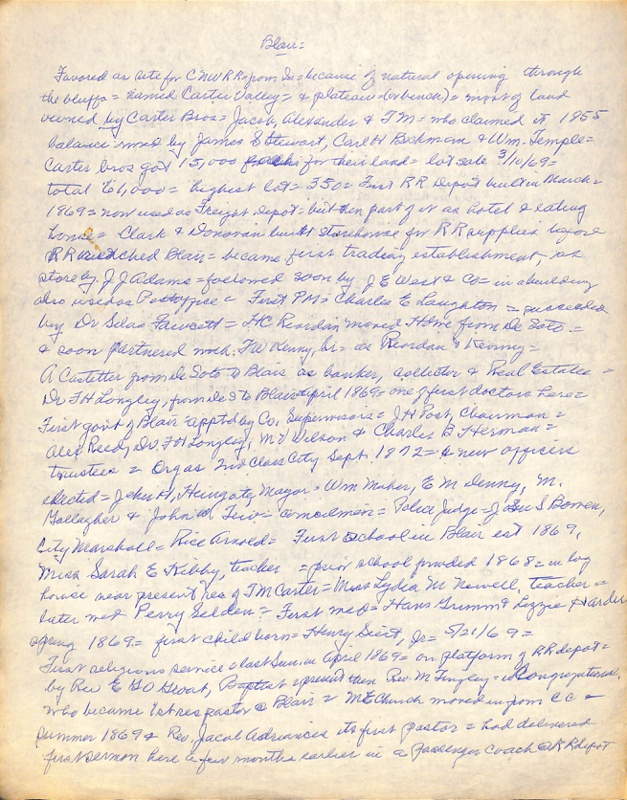 Blair=
Favored as site for C NW RR= from So because of natural opening through
the bluffs= named Carter Valley= & plateau (or bench)= most of land
owned by Carter Bros= Jacob, Alexander & T M= who claimed it 1855
balance owned by James S Stewart, Carl H Bechman & Wm. Temple=
Carter bros got 15,000 for their land= lot sale 3/10/69=
total 61,000= highest lot= 350= First RR Depot built in March=
1869= now used as Freight depot= but then part of it as hotel & eating
house= Clark & Donovan built storehouse for RR supplies before
RR reached Blair= became first trading establishment,
store by J J Adams= followed soon by J E West & Co= in a building
also used as Postoffice= First PM= Charles E Laughton= succeeded
by Dr Silas Fawcett= HC Reordan moved Home from De Soto=
& soon partnered with. TW Kenny, Sr= as Reordan & Kenny=
A Castetter from De Soto to Blair as banker, collector & Real Estate=
Dr FH Longley, from de S to Blair April 1869= one of first doctors here=
First govt of Blair apptd by Co. Supervisors= J H Post, Chairman=
Alex Reed, Dr. F H Longley, M V Wilson & Charles B Herman=
trustees= Orgas 2nd Class City Sept. 1872= & new officers
elected= John H, Hungate, Mayor= Wm Maher, E M Denny, M.
Gallagher & John W. councilmen= Police Judge= Jesse S Bowen,
City Marshall= Rice Arnold= First School in Blair est 1869,
Miss Sarah E Kibby, teacher = prior school provided 1868= in log
house near present res of TM Carter= Miss Lydia M Newell, teacher=
later Mrs Perry Selden= First wed= Hans Grimm & Lizzie Harder
spring 1869= first child born= Henry Siert, Jr= 5/21/69=
First religious service last Sun in April 1869= on platform of RR depot=
by Rev E GO Groat, Baptist & present then Rev. M Tingley= Congregational,
who became 1st res pastor @ Blair= ME Church moved in from CC=
summer 1869 & Rev. Jacob Adriances its first pastor= had delivered
first sermon here a few months earlier in a passenger coach @ RR depot